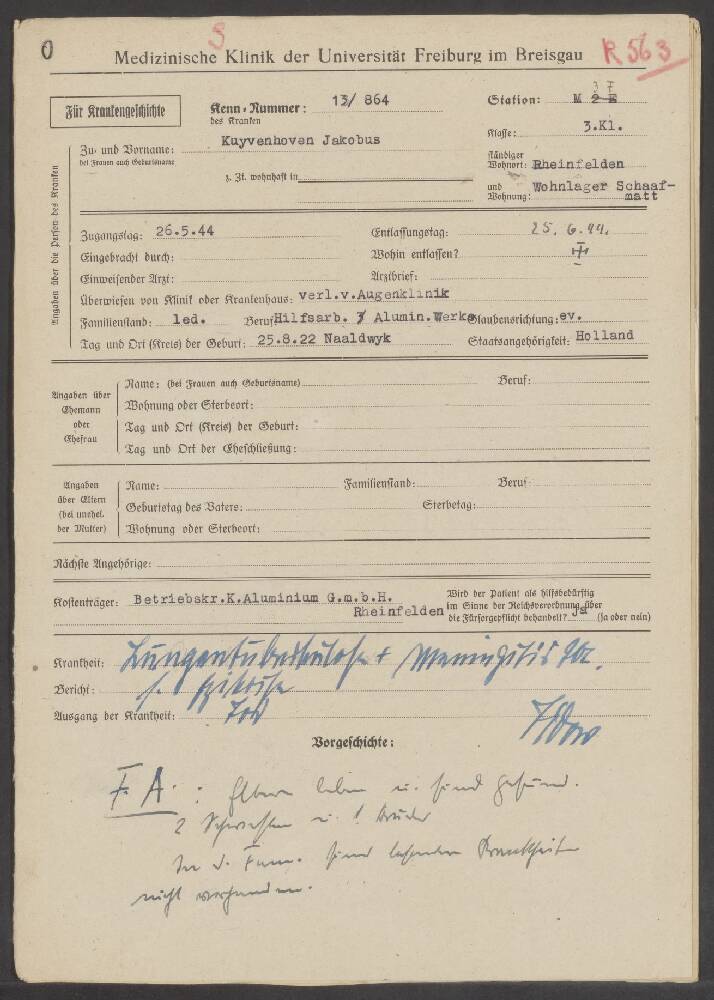 O
S
Medizinische Klinik der Universität Freiburg im Breisgau
R 563
Für Krankengeschichte
Kenn-Nummer: 13/ 864
des Kranken
Station: M 2 E
3 F
Klasse: 3.Kl.
Zu- und Vorname: Kuyvenhoven Jakobus
bei Frauen auch Geburtsname
z. Zt. wohnhaft in
ständiger Wohnort: Rheinfelden
und Wohnung: Wohnlager Schaaf-
matt
Angaben über die Person des Kranken
Zugangstag: 26.5.44
Entlassungstag: 25. 6. 44.
Eingebracht durch:
Wohin entlassen? †
Einweisender Arzt:
Arztbrief:
Überwiesen von Klinik oder Krankenhaus: verl.v.Augenklinik
Familienstand: led. Beruf Hilfsarb. / Alumin.Werke Glaubensrichtung: ev.
Tag und Ort (Kreis) der Geburt: 25.8.22 Naaldwyk Staatsangehörigkeit: Holland
Angaben über Ehemann oder Ehefrau
Name: (bei Frauen auch Geburtsname) Beruf:
Wohnung oder Sterbeort:
Tag und Ort (Kreis) der Geburt:
Tag und Ort der Eheschließung:
Angaben über Eltern (bei unehel. der Mutter)
Name: Familienstand: Beruf:
Geburtstag des Vaters: Sterbetag:
Wohnung oder Sterbeort:
Nächste Angehörige:
Kostenträger: Betriebskr.K.Aluminium G.m.b.H.
Rheinfelden
Wird der Patient als hilfsbedürftig
im Sinne der Reichsverordnung über
die Fürsorgepflicht behandelt? ja (ja oder nein)
Krankheit: Lungentuberkulose + Meningitis tbc.
Bericht: s. Epikrise
Ausgang der Krankheit: Tod
Vorgeschichte:
F. A. : Eltern leben u. sind gesund.
2 Schwestern u. 1 Bruder
In d. Fam. sind Krankheiten
nicht vorhanden.